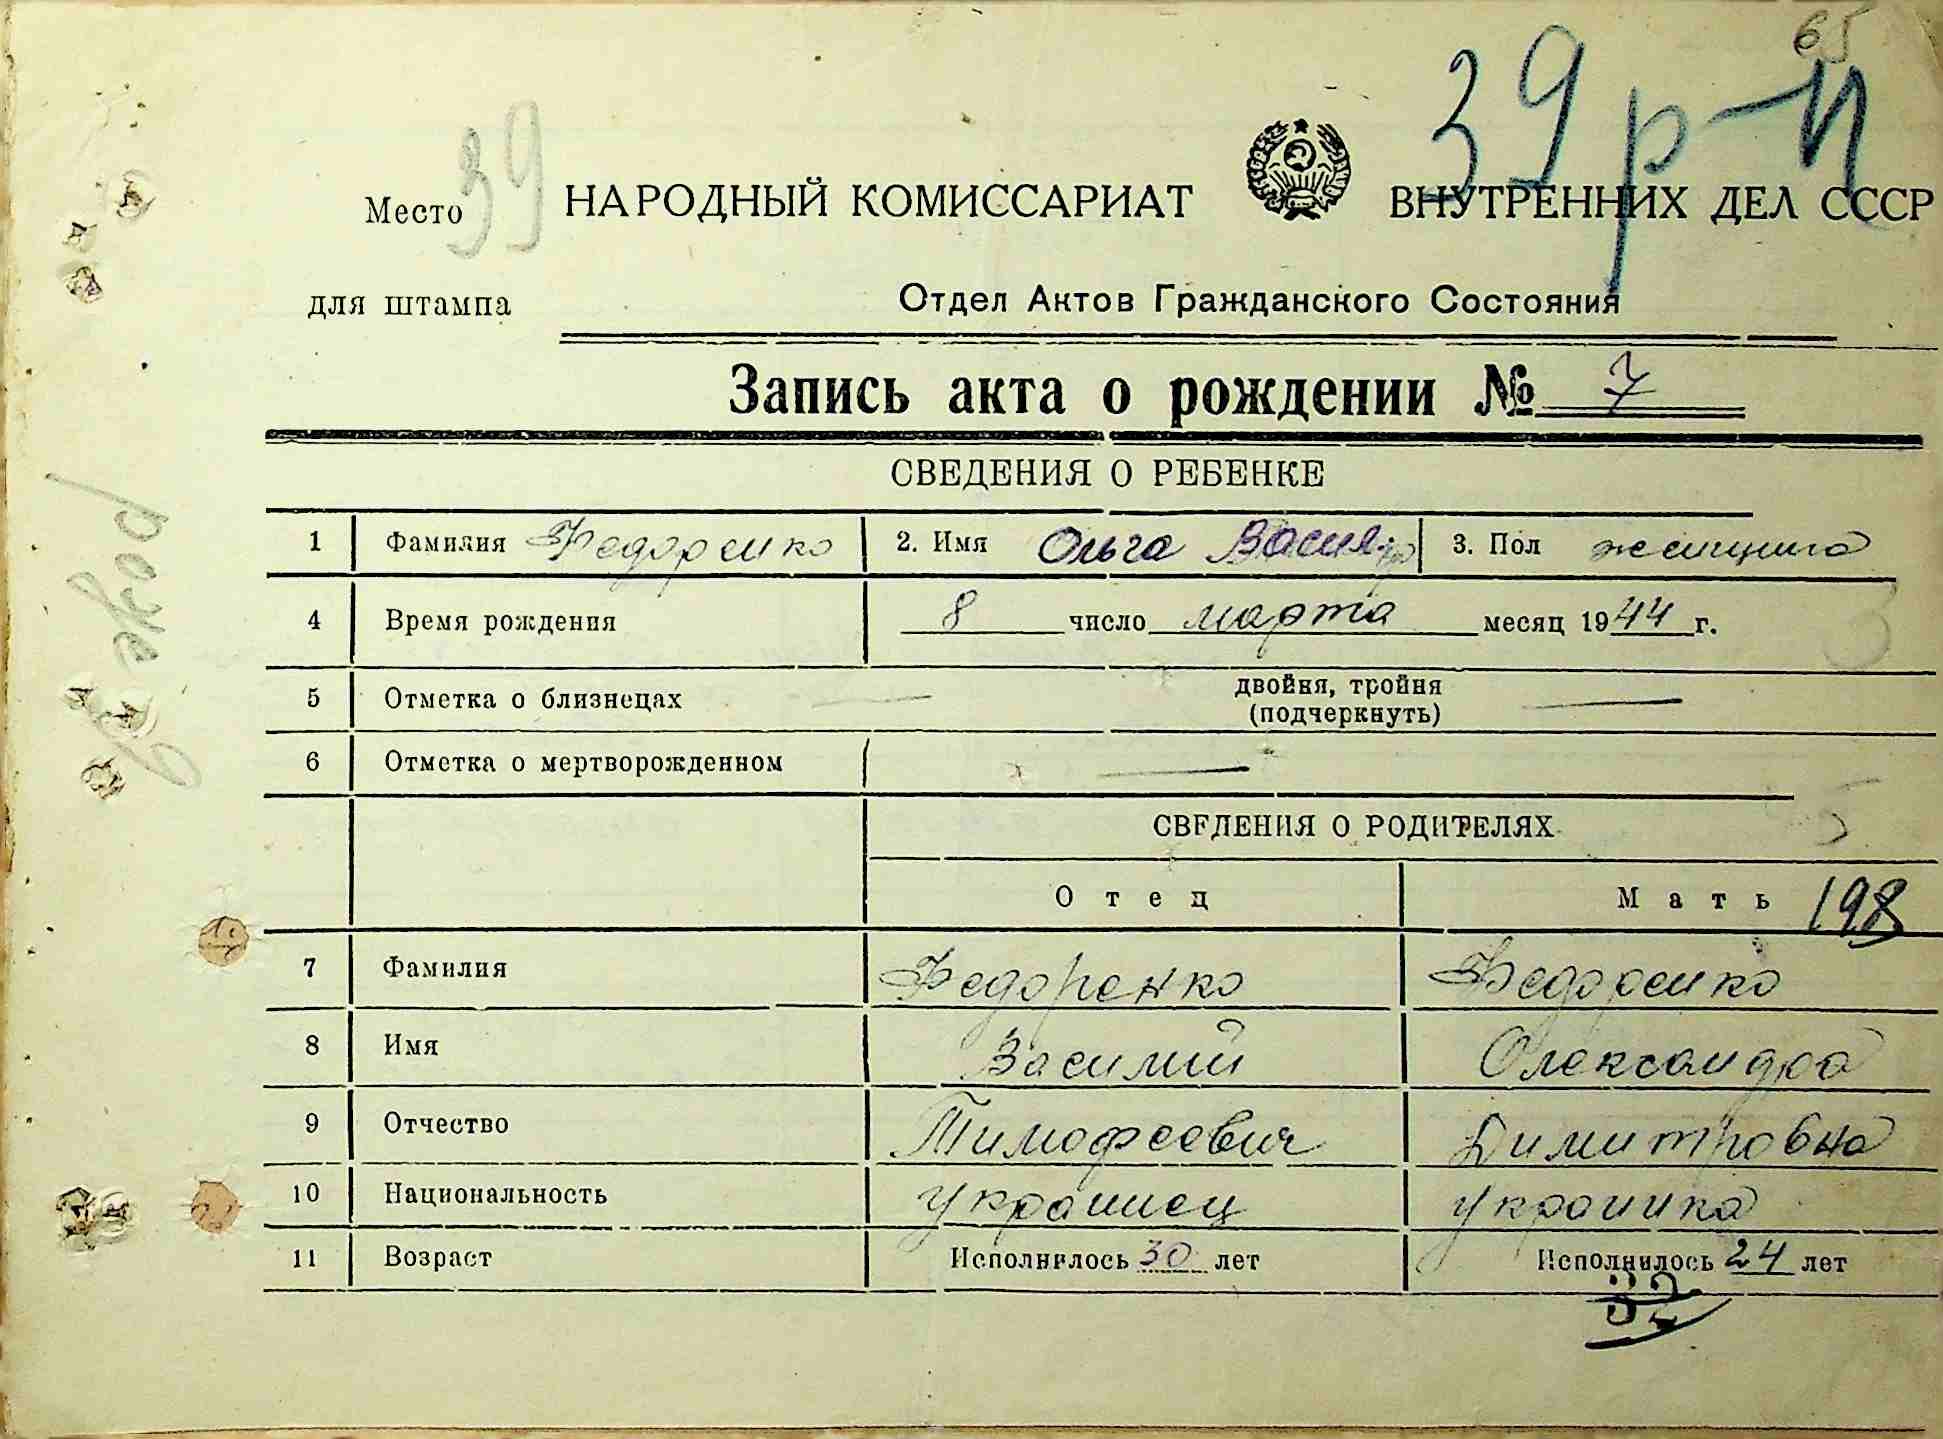 65
39 р-н
39
Место
НАРОДНЫЙ КОМИССАРИАТ ВНУТРЕННИХ ДЕЛ СССР
для штампа
Отдел Актов Гражданского Состояния
Запись акта о рождении № 7
СВЕДЕНИЯ О РЕБЕНКЕ
1 Фамилия Федоренко 2. Имя Ольга 3. Пол женщина
4 Время рождения 8 число марта месяц 1944 г.
5 Отметка о близнецах — двойня, тройня —
(подчеркнуть)
6 Отметка о мертворожденном —
СВЕДЕНИЯ О РОДИТЕЛЯХ
Отец Мать 198
7 Фамилия Федоренко Федоренко
8 Имя Василий Олександра
9 Отчество Тимофеевич Димитровна
10 Национальность украинец украинка
11 Возраст Исполнилось 30 лет Исполнилось 24 лет